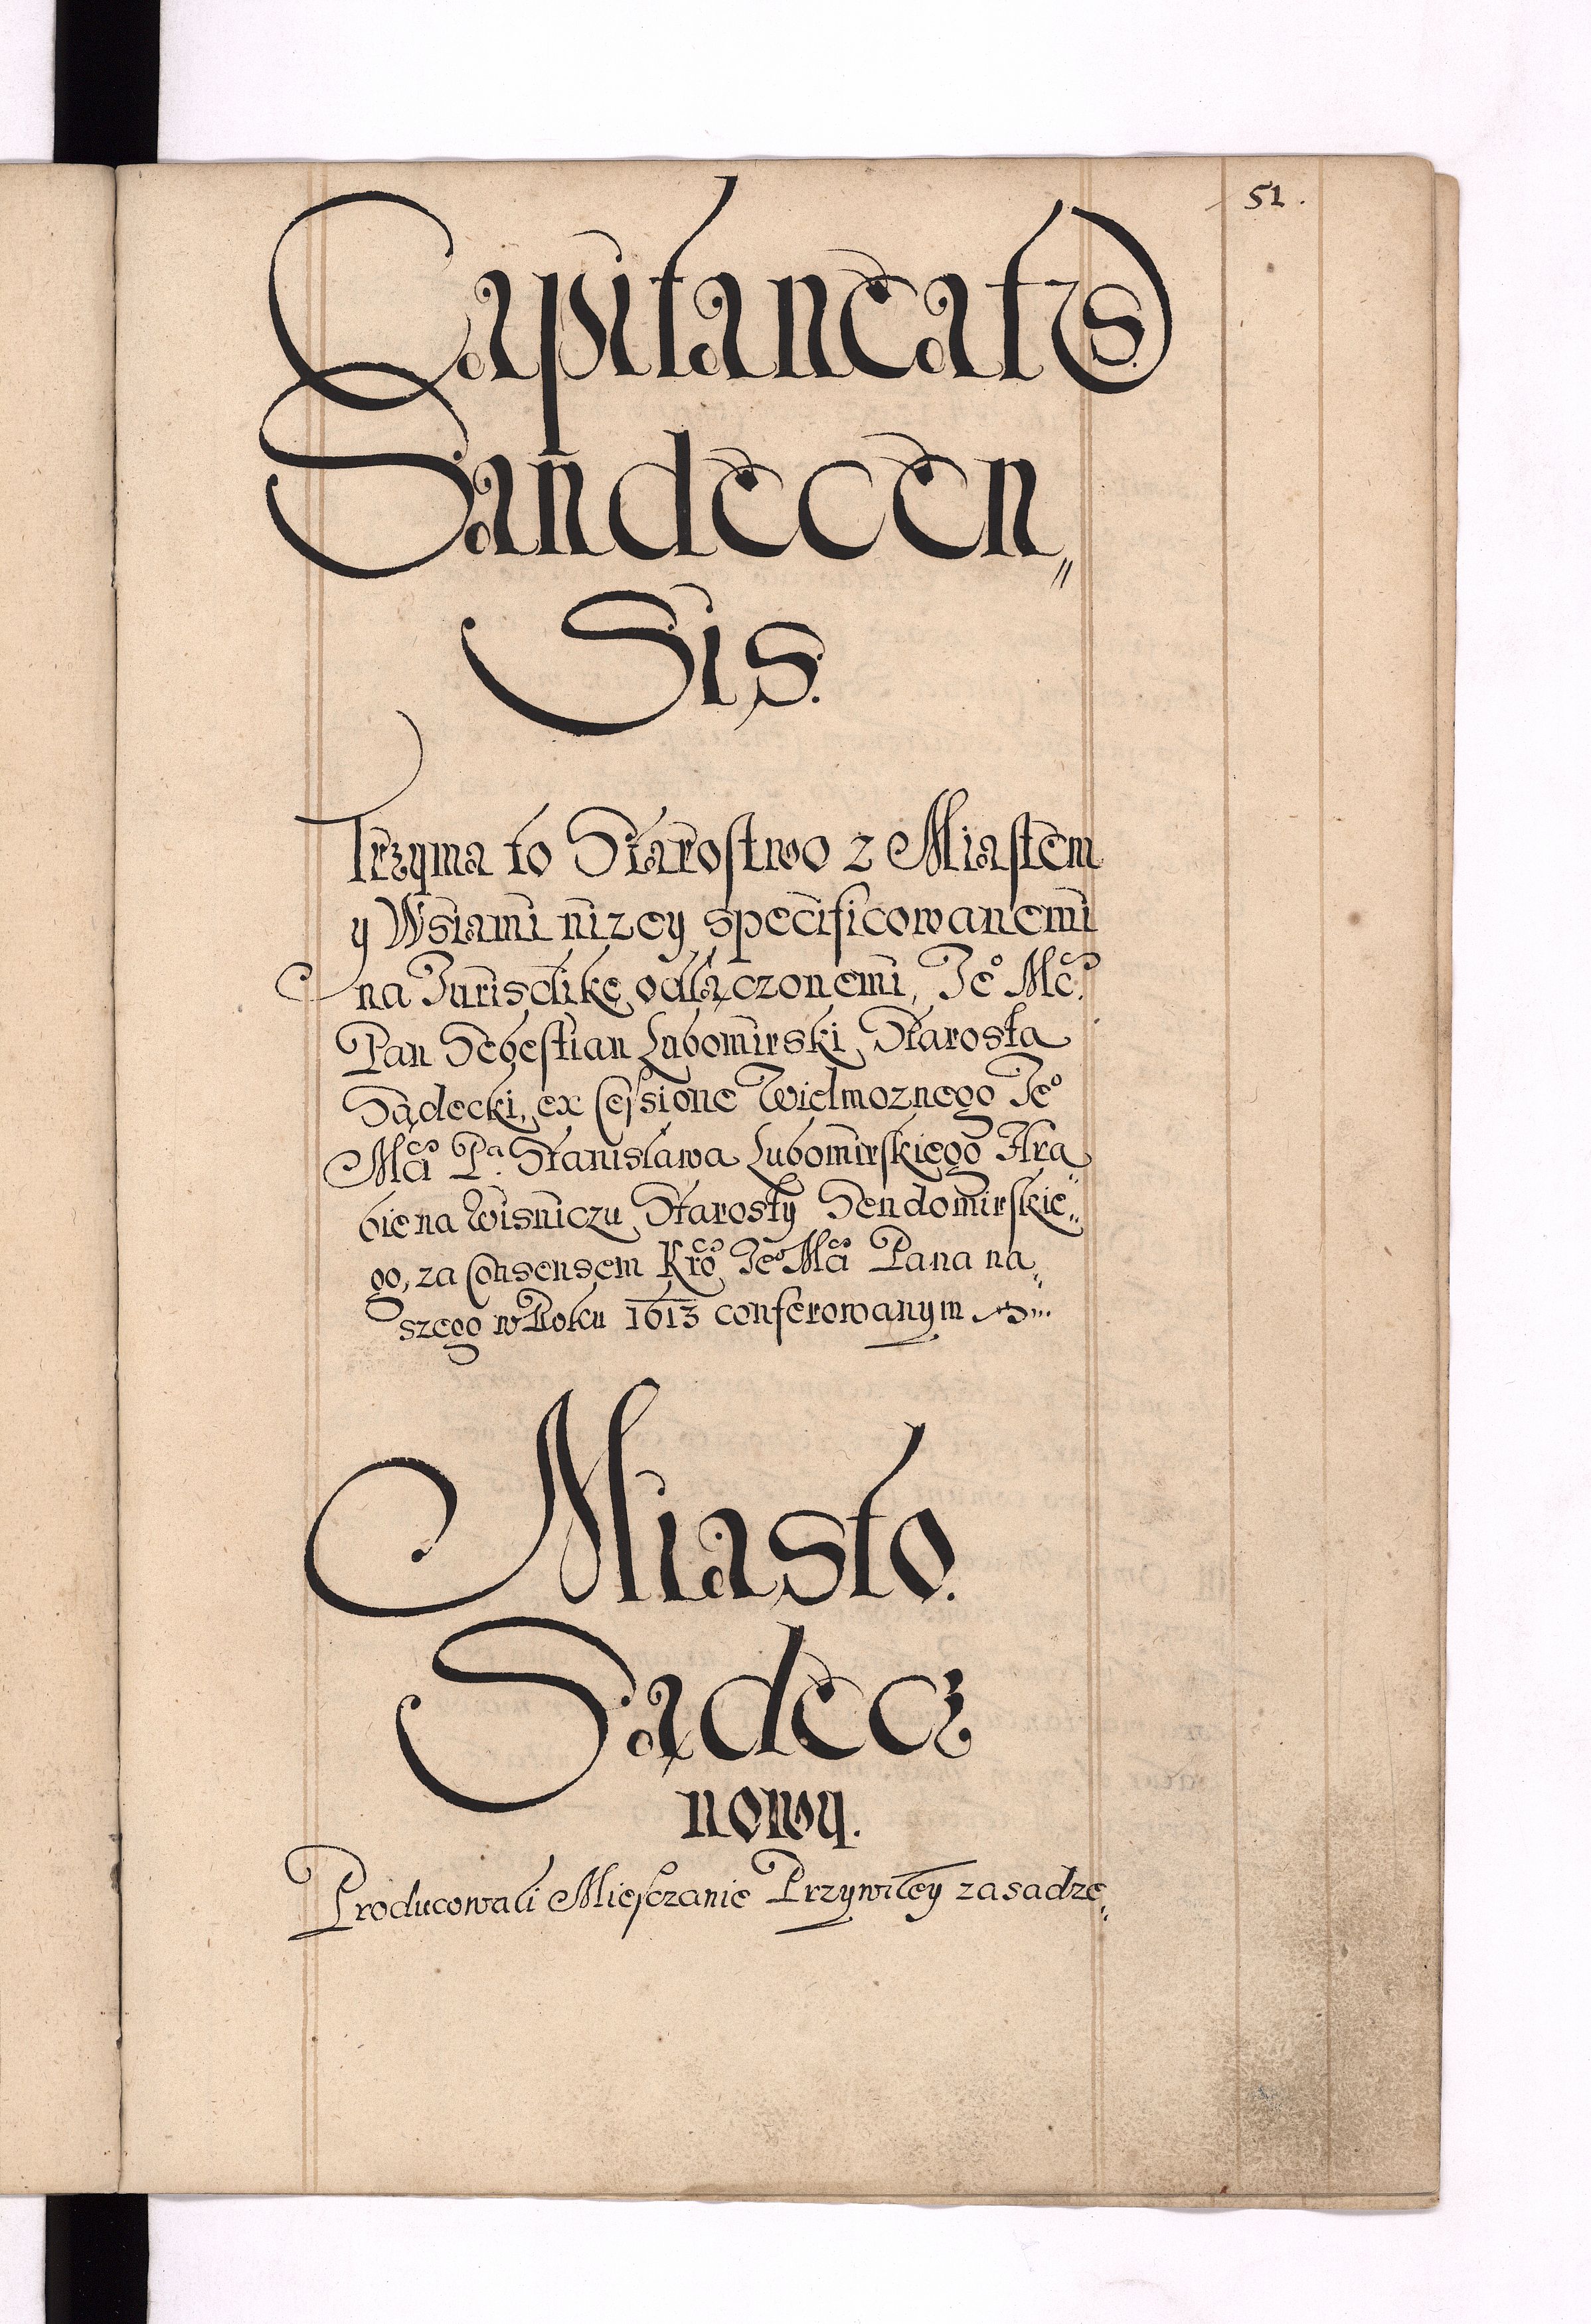 51.
Capitaneatus
Sandecen„
Sis.
Trzyma to Starostwo z Miastem
y Wsiami nizey specificowanemi
na Jurisdikę odłączonemi, Jeº Mci
Pan Sebestian Lubomirski Starosta
Sądecki, ex Cessione Wielmoznego Jeº
Mci Pª Stanisława Lubomirskiego Hra„
bie na Wisniczu Starosty Sendomirskie„
go, za Consensem Kroº Jeº Mci Pana na„
szego w Roku 1613 conferowanym
Miasto.
Sądecz
nowy.
Producowali Miesczanie Przywiley zasadze„